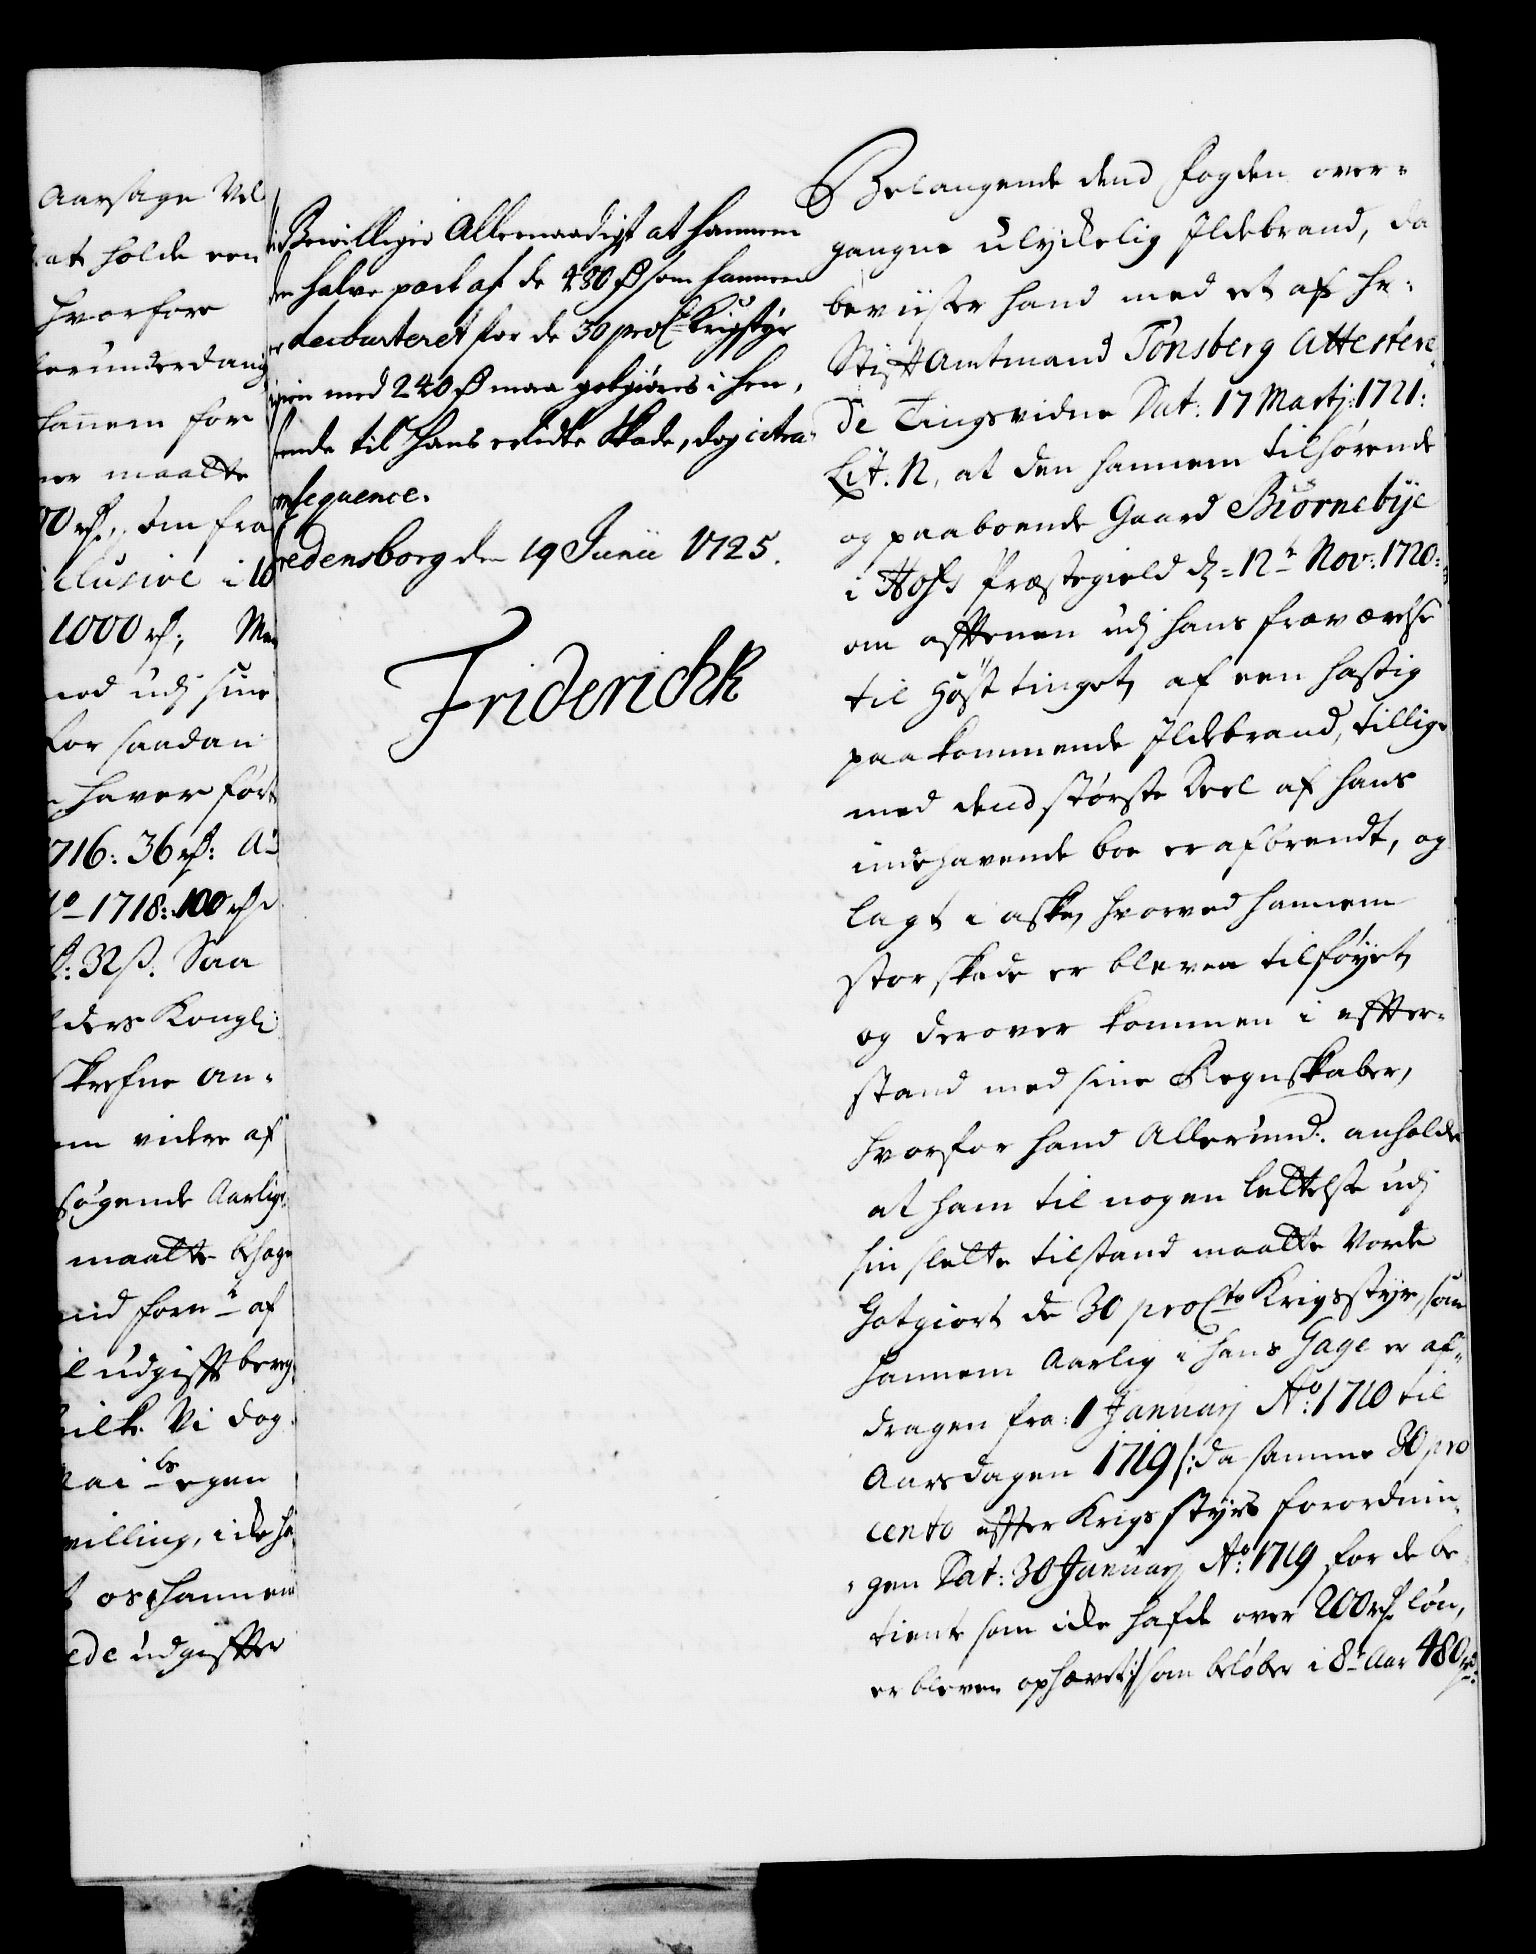 Aarsage Vel
at holde een
hvorfore
lerunderdanig
hannem for
ner maatte
00 rd., som fra
clusive i 10
1000 rd; Men
mod udj sine
for saadan
haver ført
1716: 36 rd: Ao
Ao 1718: 100 rd
32 ß. Saa
lders Kongl:
skrefne an-
em videre af
søgende Aarlig:
maatte behage
forne af
il udgifft bereg
Vi dog
egen
villing, icke ha
os, hannem
ede udgiffter
Bewilliges Allernaadigst at hannem
den halve part af de 480 rd som hannem
er decourteret for de 30 proCto Krigstyr
igien med 240 rd maa godgiøres i hen,
seende til hans erlidte Skade, dog citra
consequence.
Fredensborg den 19 Junii 1725.
Friderichk
Belangende dend Fogden over-
gangne ulyckelig Ildebrand, da
beviiser hand med et af hr:
Stifft Amtmand Tønsberg Attestere-
de Tingsvidne Dat: 17 Martj: 1721:
Lit. N, at den hannem tilhørende
og paaboende Gaard Biørnebÿe
i Hofs Præstegield d: 12te Nov: 1720:
om afftenen udj hans fraværelse
til Høsttinget, af een hastig
paakommende Ildebrand, tillige
med dend største Deel af hans
indehavende boe er afbrendt, og
lagt i aske, hvorved hannem
stor skade er bleven tilføyet,
og derover kommen i effter-
stand med sine Regnskaber,
hvorfor hand Allerund: anholder
at ham til nogen lettelse udj
sin slette tilstand maatte vorde
Gotgiort de 30 proCto Krigsstyr, som
hannem Aarlig i hans Gage er af-
dragen fra: 1 Januarj Ao: 1710 til
Aarsdagen 1719 /: da samme 30 pro
cento effter Krigs styrs forordnin-
gen Dat: 30 Januarj Ao: 1719 for de be
tiente som icke hafde over 200 rd. løn,
er bleven ophævet :/ som beløber i 8te Aar 480 rd: